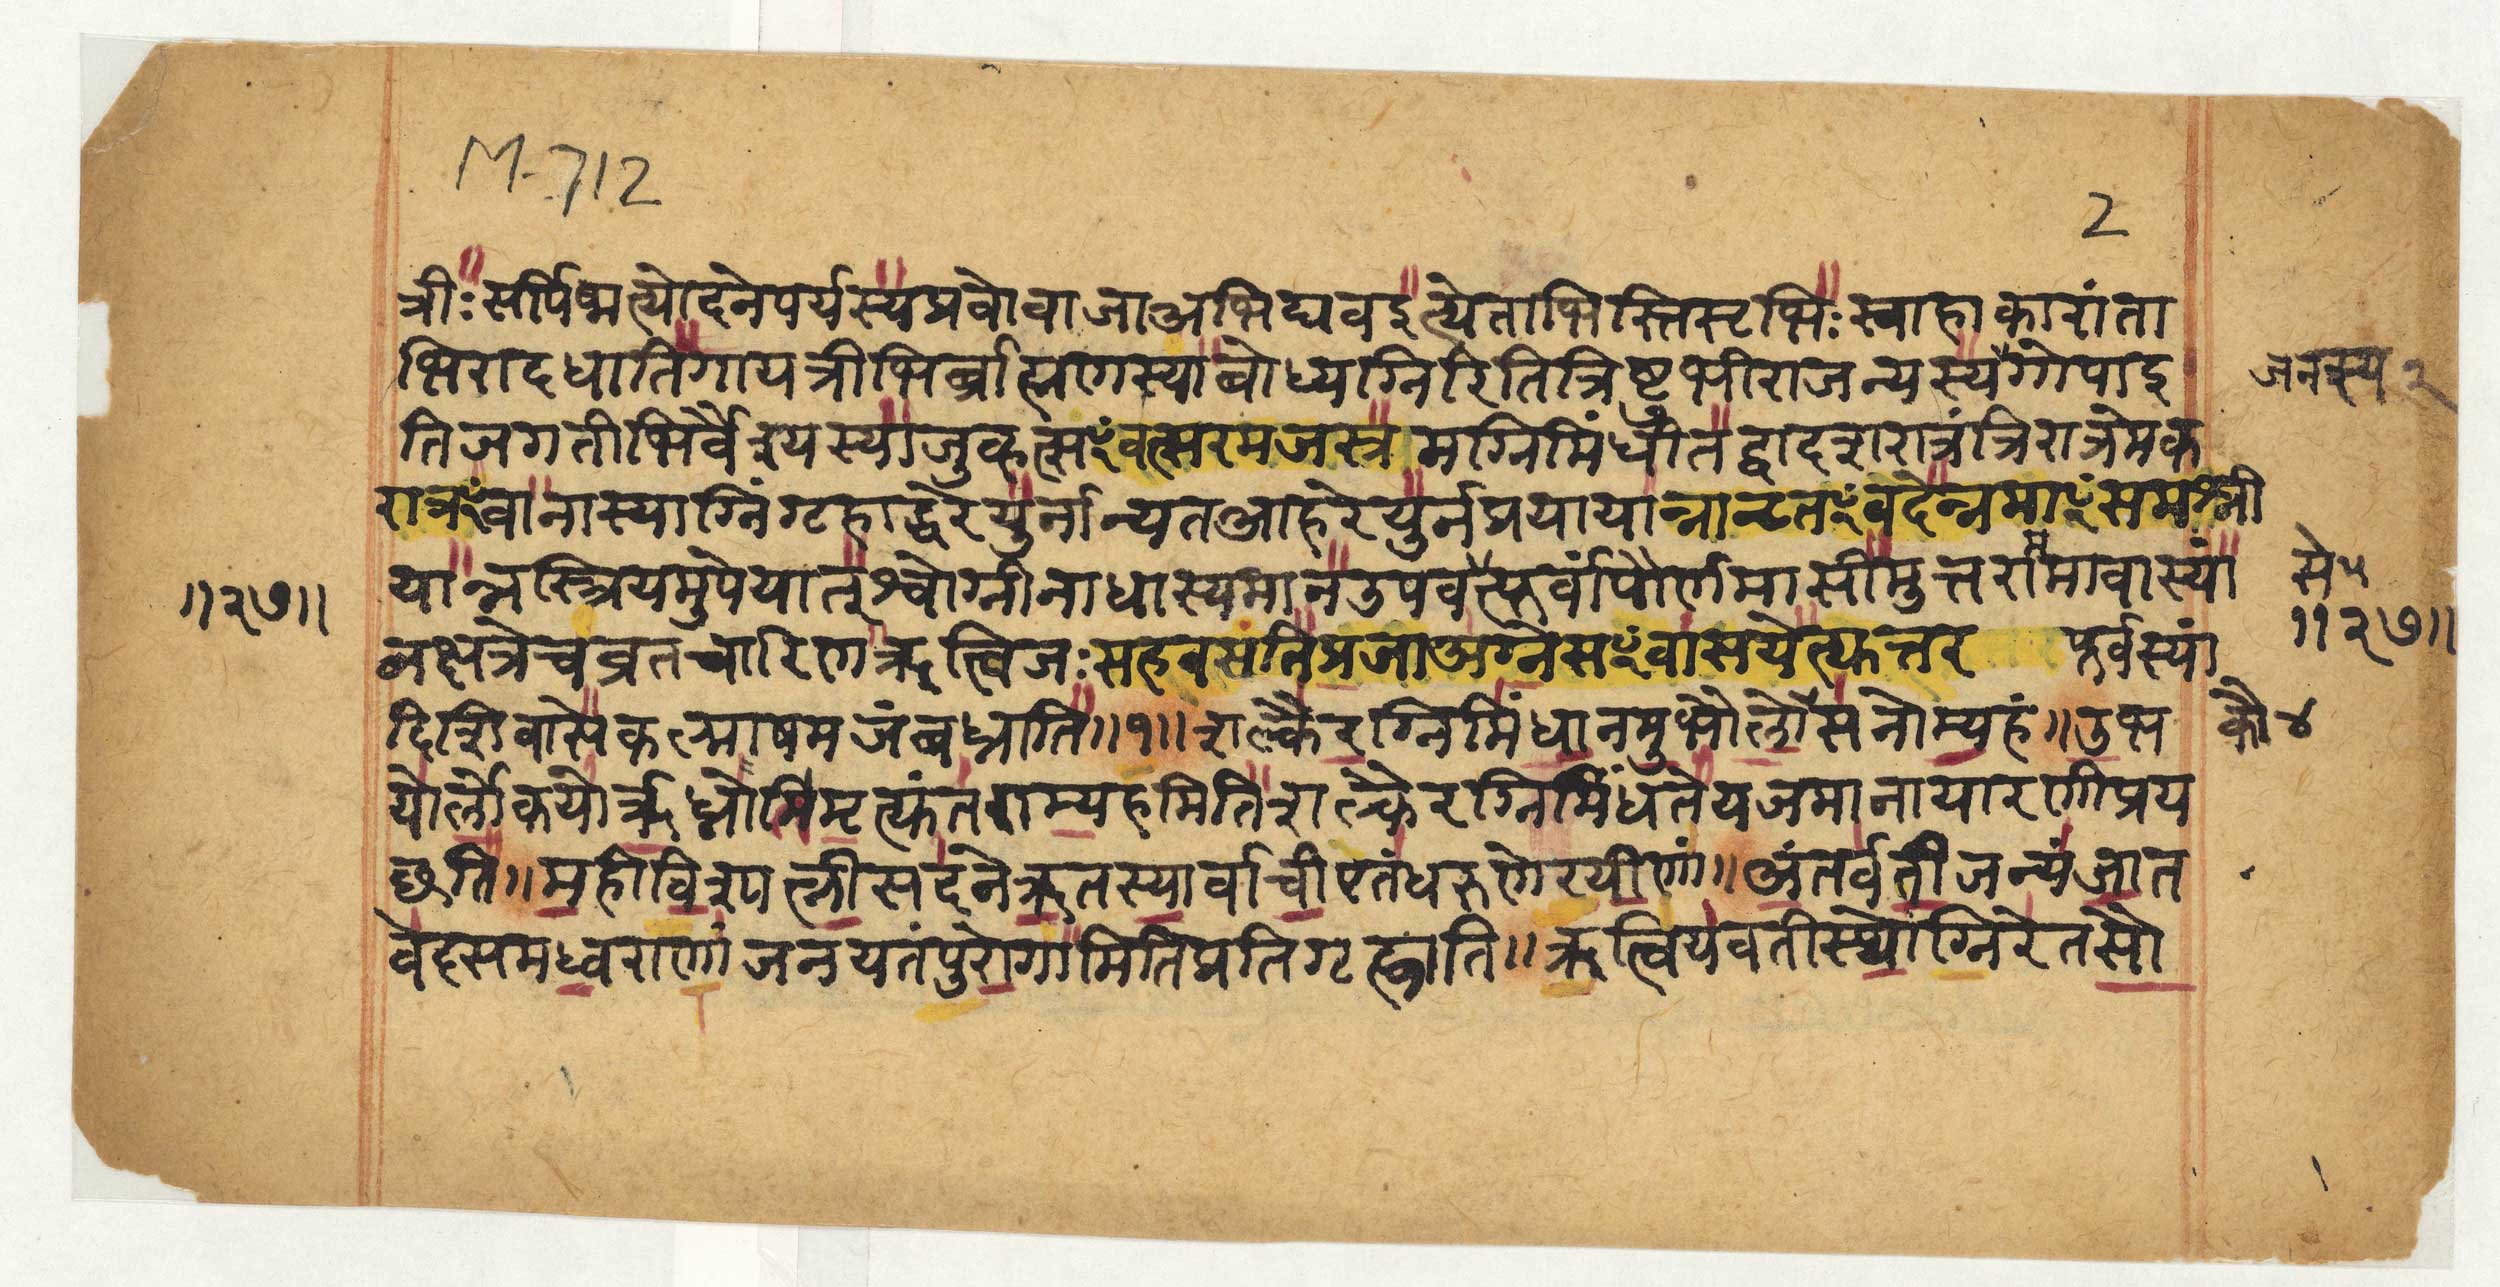 M-712
2
त्रीः सर्पिष्मत्योदनेपर्यस्यप्रवोवाजाअभिद्यवइत्येताभिस्तिसृभिःस्वाहाकारांता
भिरादधातिगायत्रीभिर्ब्राह्मणस्याबोध्यग्निरितित्रिष्टुभीराजन्यस्यगोपाइ
जनस्य २
तिजगतीभिर्वैश्यस्याजुह्वत्सꣳवत्सरमजस्त्रमग्निमिंधीतद्वादशरात्रंत्रिरात्रमेक
रात्रꣳवानास्याग्निंगृहाद्धरेयुर्नान्यतआहरेयुर्नप्रयायान्नानृतꣳवदेन्नमाꣳसमश्नी
यान्नस्त्रियमुपेयात्श्वोग्नीनाधास्यमानउपवत्स्यत्पूर्वांपौर्णमासीमुत्तराममावास्यां
से ५
॥२७॥
॥२७॥
नक्षत्रेचव्रतचारिणऋत्विजःसहवसंतिप्रजाअग्नेसꣳवासयेत्युत्तर पूर्वस्यां
दिशिवासेकल्माषमजंबध्नाति॥१॥शल्कैरग्निमिंधानमुभौलोसनोम्यहं॥उभ
कौ ४
योर्लोकयोर्ऋध्नोमिमृत्युंतराम्यहमितिशल्कैरग्निमिंधतेयजमानायारणीप्रय
छति॥महीविश्पत्नीसदनेऋतस्यार्वाचीएतंधरुणेरयीणां॥अंतर्वतीजन्यंजात
वेदसमध्वराणांजनयतंपुरोगामितिप्रतिगृह्णाति॥ऋत्वियवतीस्थोग्निरेतसौ